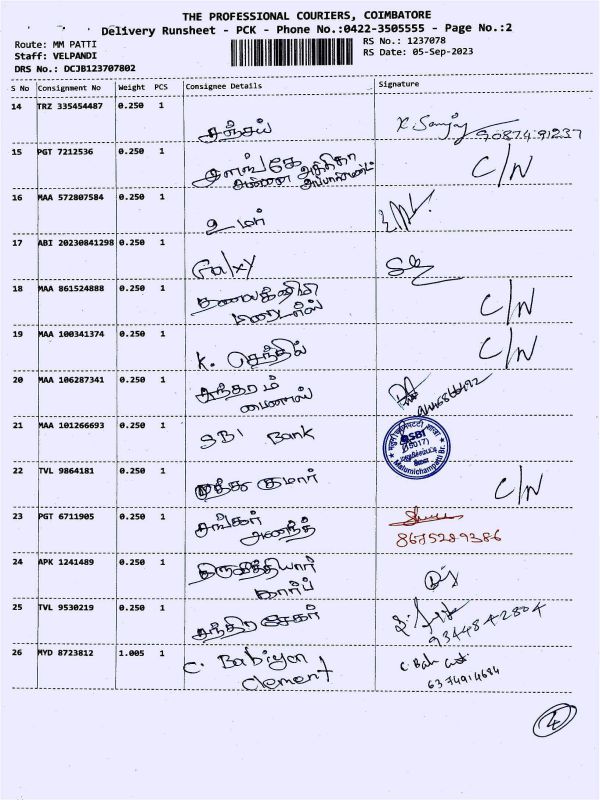 THE PROFESSIONAL COURIERS, COIMBATORE
Delivery Runsheet - PCK - Phone No.:0422-3505555 - Page No.:2
Route: MM PATTI
RS No.: 1237078
Staff: VELPANDI
RS Date: 05-Sep-2023
DRS No.: DCJB123707802
S No Consignment No Weight PCS Consignee Details Signature
14 TRZ 335454487 0.250 1 சஞ்சய் K. Sanjay 9087491237
15 PGT 7212536 0.250 1 C/N
16 MAA 572807584 0.250 1 உமர்
17 ABI 20230841298 0.250 1 Galxy
18 MAA 861524888 0.250 1 C/N
19 MAA 100341374 0.250 1 K. செந்தில் C/N
20 MAA 106287341 0.250 1
21 MAA 101266693 0.250 1 SBI Bank SBI (15017) Malumichampatti Br.
22 TVL 9864181 0.250 1 முத்து குமார் C/N
23 PGT 6711905 0.250 1 சங்கர்
ஆனந்த் 8675289386
24 APK 1241489 0.250 1
25 TVL 9530219 0.250 1 சந்திர சேகர் 9344842804
26 MYD 8723812 1.005 1 C. Babiyon
Clement 6374914684
4